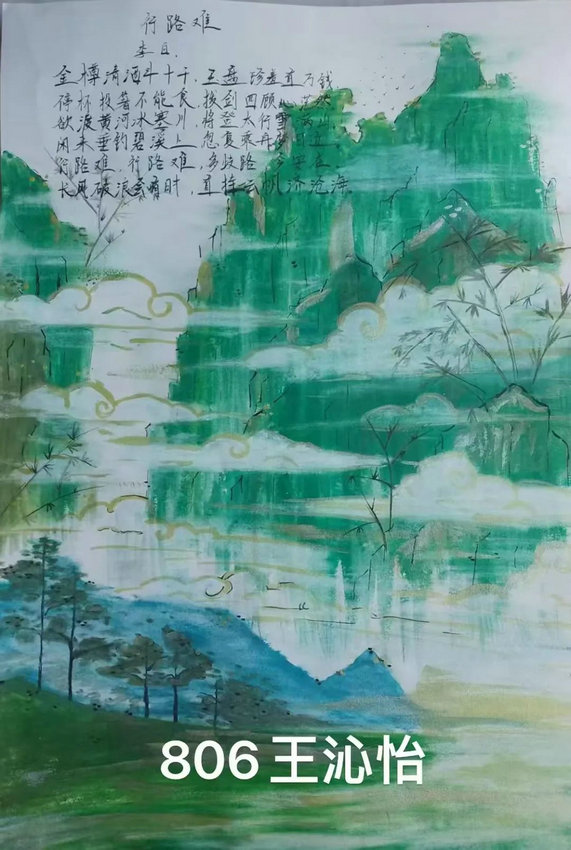 行路难
李白
金樽清酒斗十千,玉盘珍羞直万钱
停杯投箸不能食,拔剑四顾心茫然
欲渡黄河冰塞川,将登太行雪满山.
闲来垂钓碧溪上,忽复乘舟梦日边
行路难,行路难,多歧路,今安在
长风破浪会有时,直挂云帆济沧海.
806王沁怡